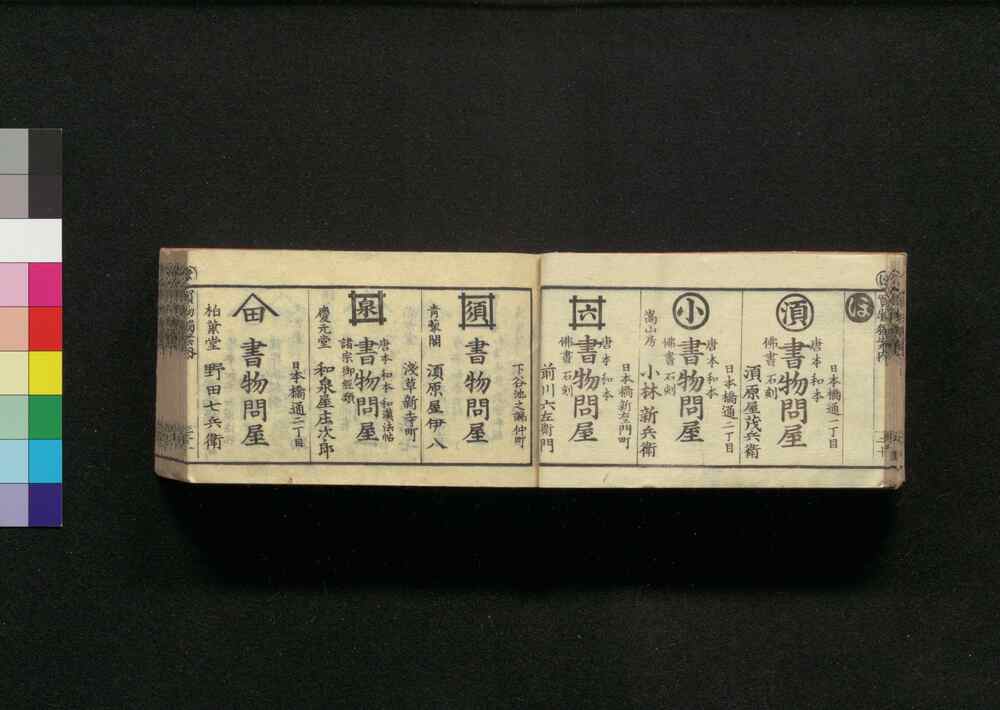 ほ
日本橋通一丁目
須
唐本 和本
書物問屋
佛書 石刻
須原屋茂兵衛
日本橋通二丁目
小
唐本 和本
書物問屋
佛書 石刻
嵩山房
小林新兵衛
日本橋新右衛門町
六
唐本 和本
書物問屋
佛書 石刻
前川六左衛門
下谷池之端仲町
須
書物問屋
青藜閣 須原屋伊八
浅草新寺町
泉
唐本 和本 和漢法帖
書物問屋
諸宗御經類
慶元堂 和泉屋庄次郎
日本橋通二丁目
田
書物問屋
柏葉堂 野田七兵衛